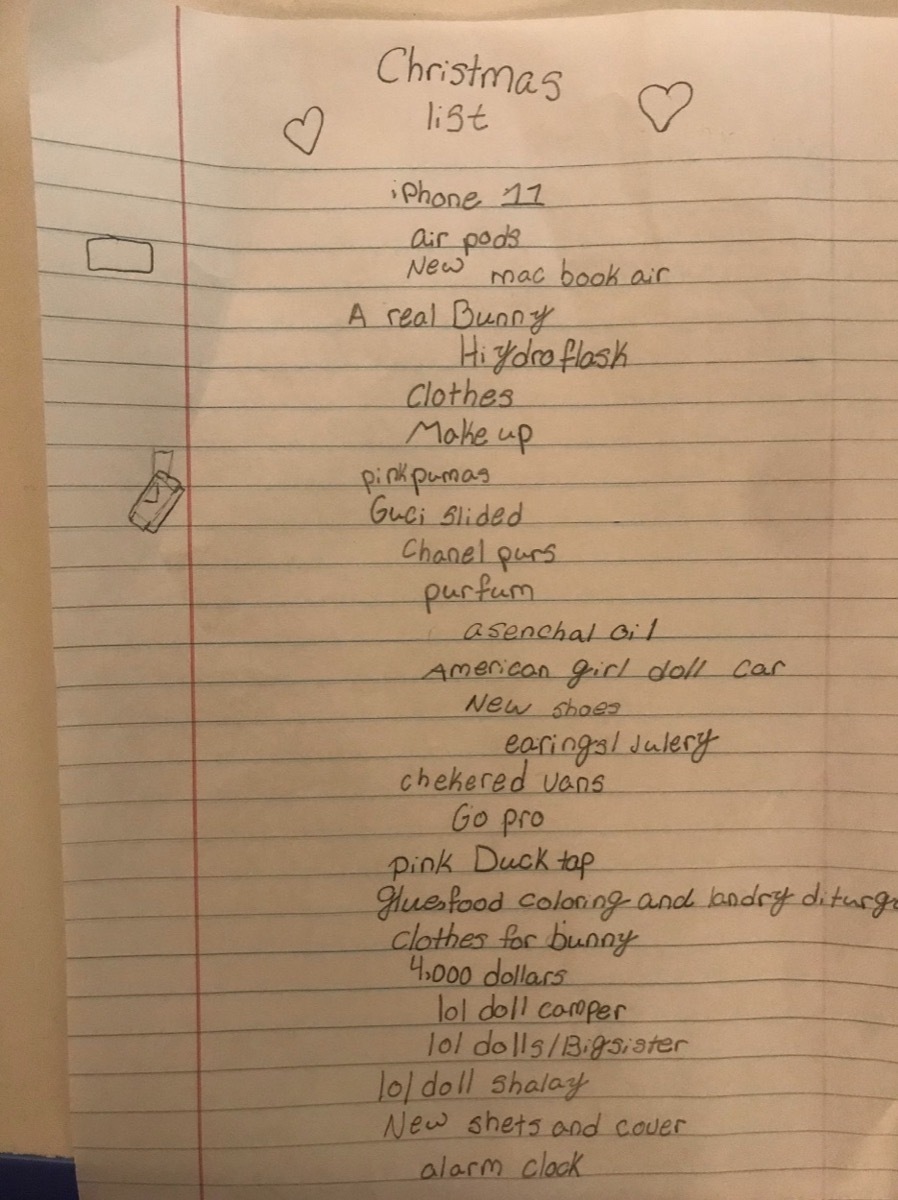 Christmas
list
iPhone 11
air pods
New mac book air
A real Bunny
Hiydroflask
Clothes
Make up
pink pumas
Guci slided
Chanel purs
purfum
asenchal oil
American girl doll car
New shoes
earings/Julery
chekered vans
Go pro
pink Duck tap
glue, food coloring and landry diturg
Clothes for bunny
4,000 dollars
lol doll camper
lol dolls/Bigsister
lol doll shalay
New shets and cover
alarm clock